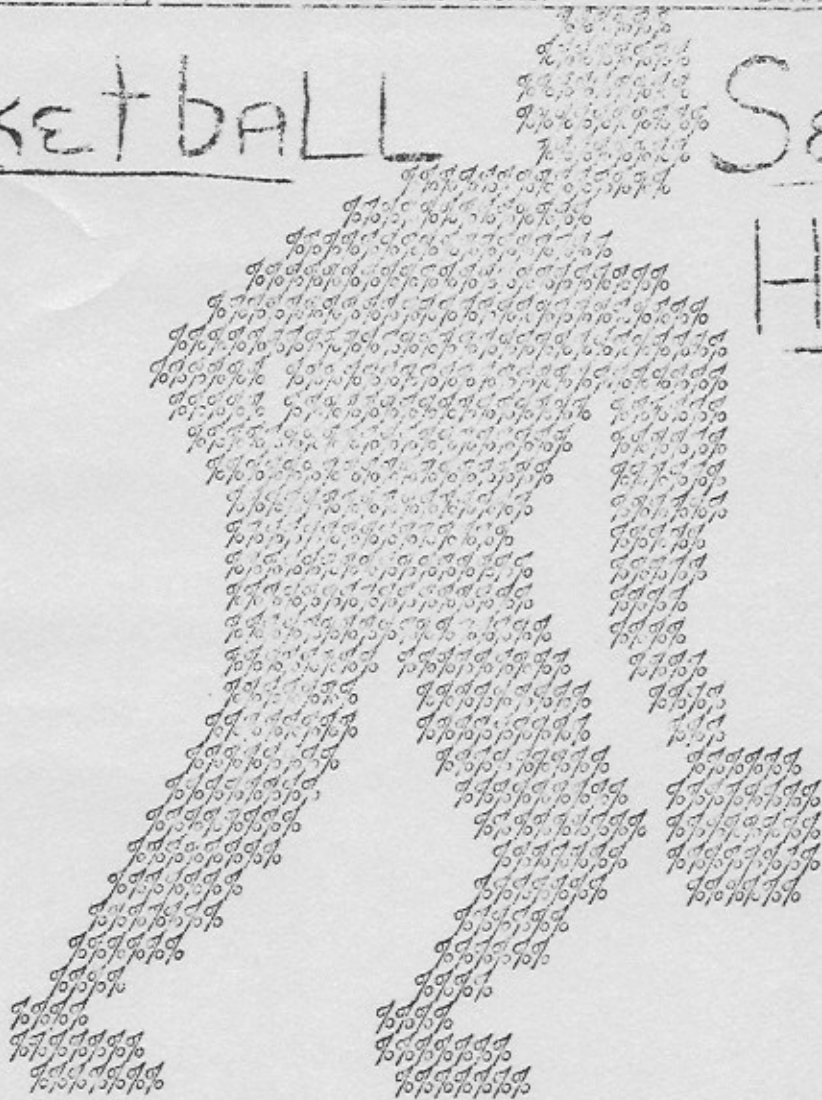 ketbALL Se
H